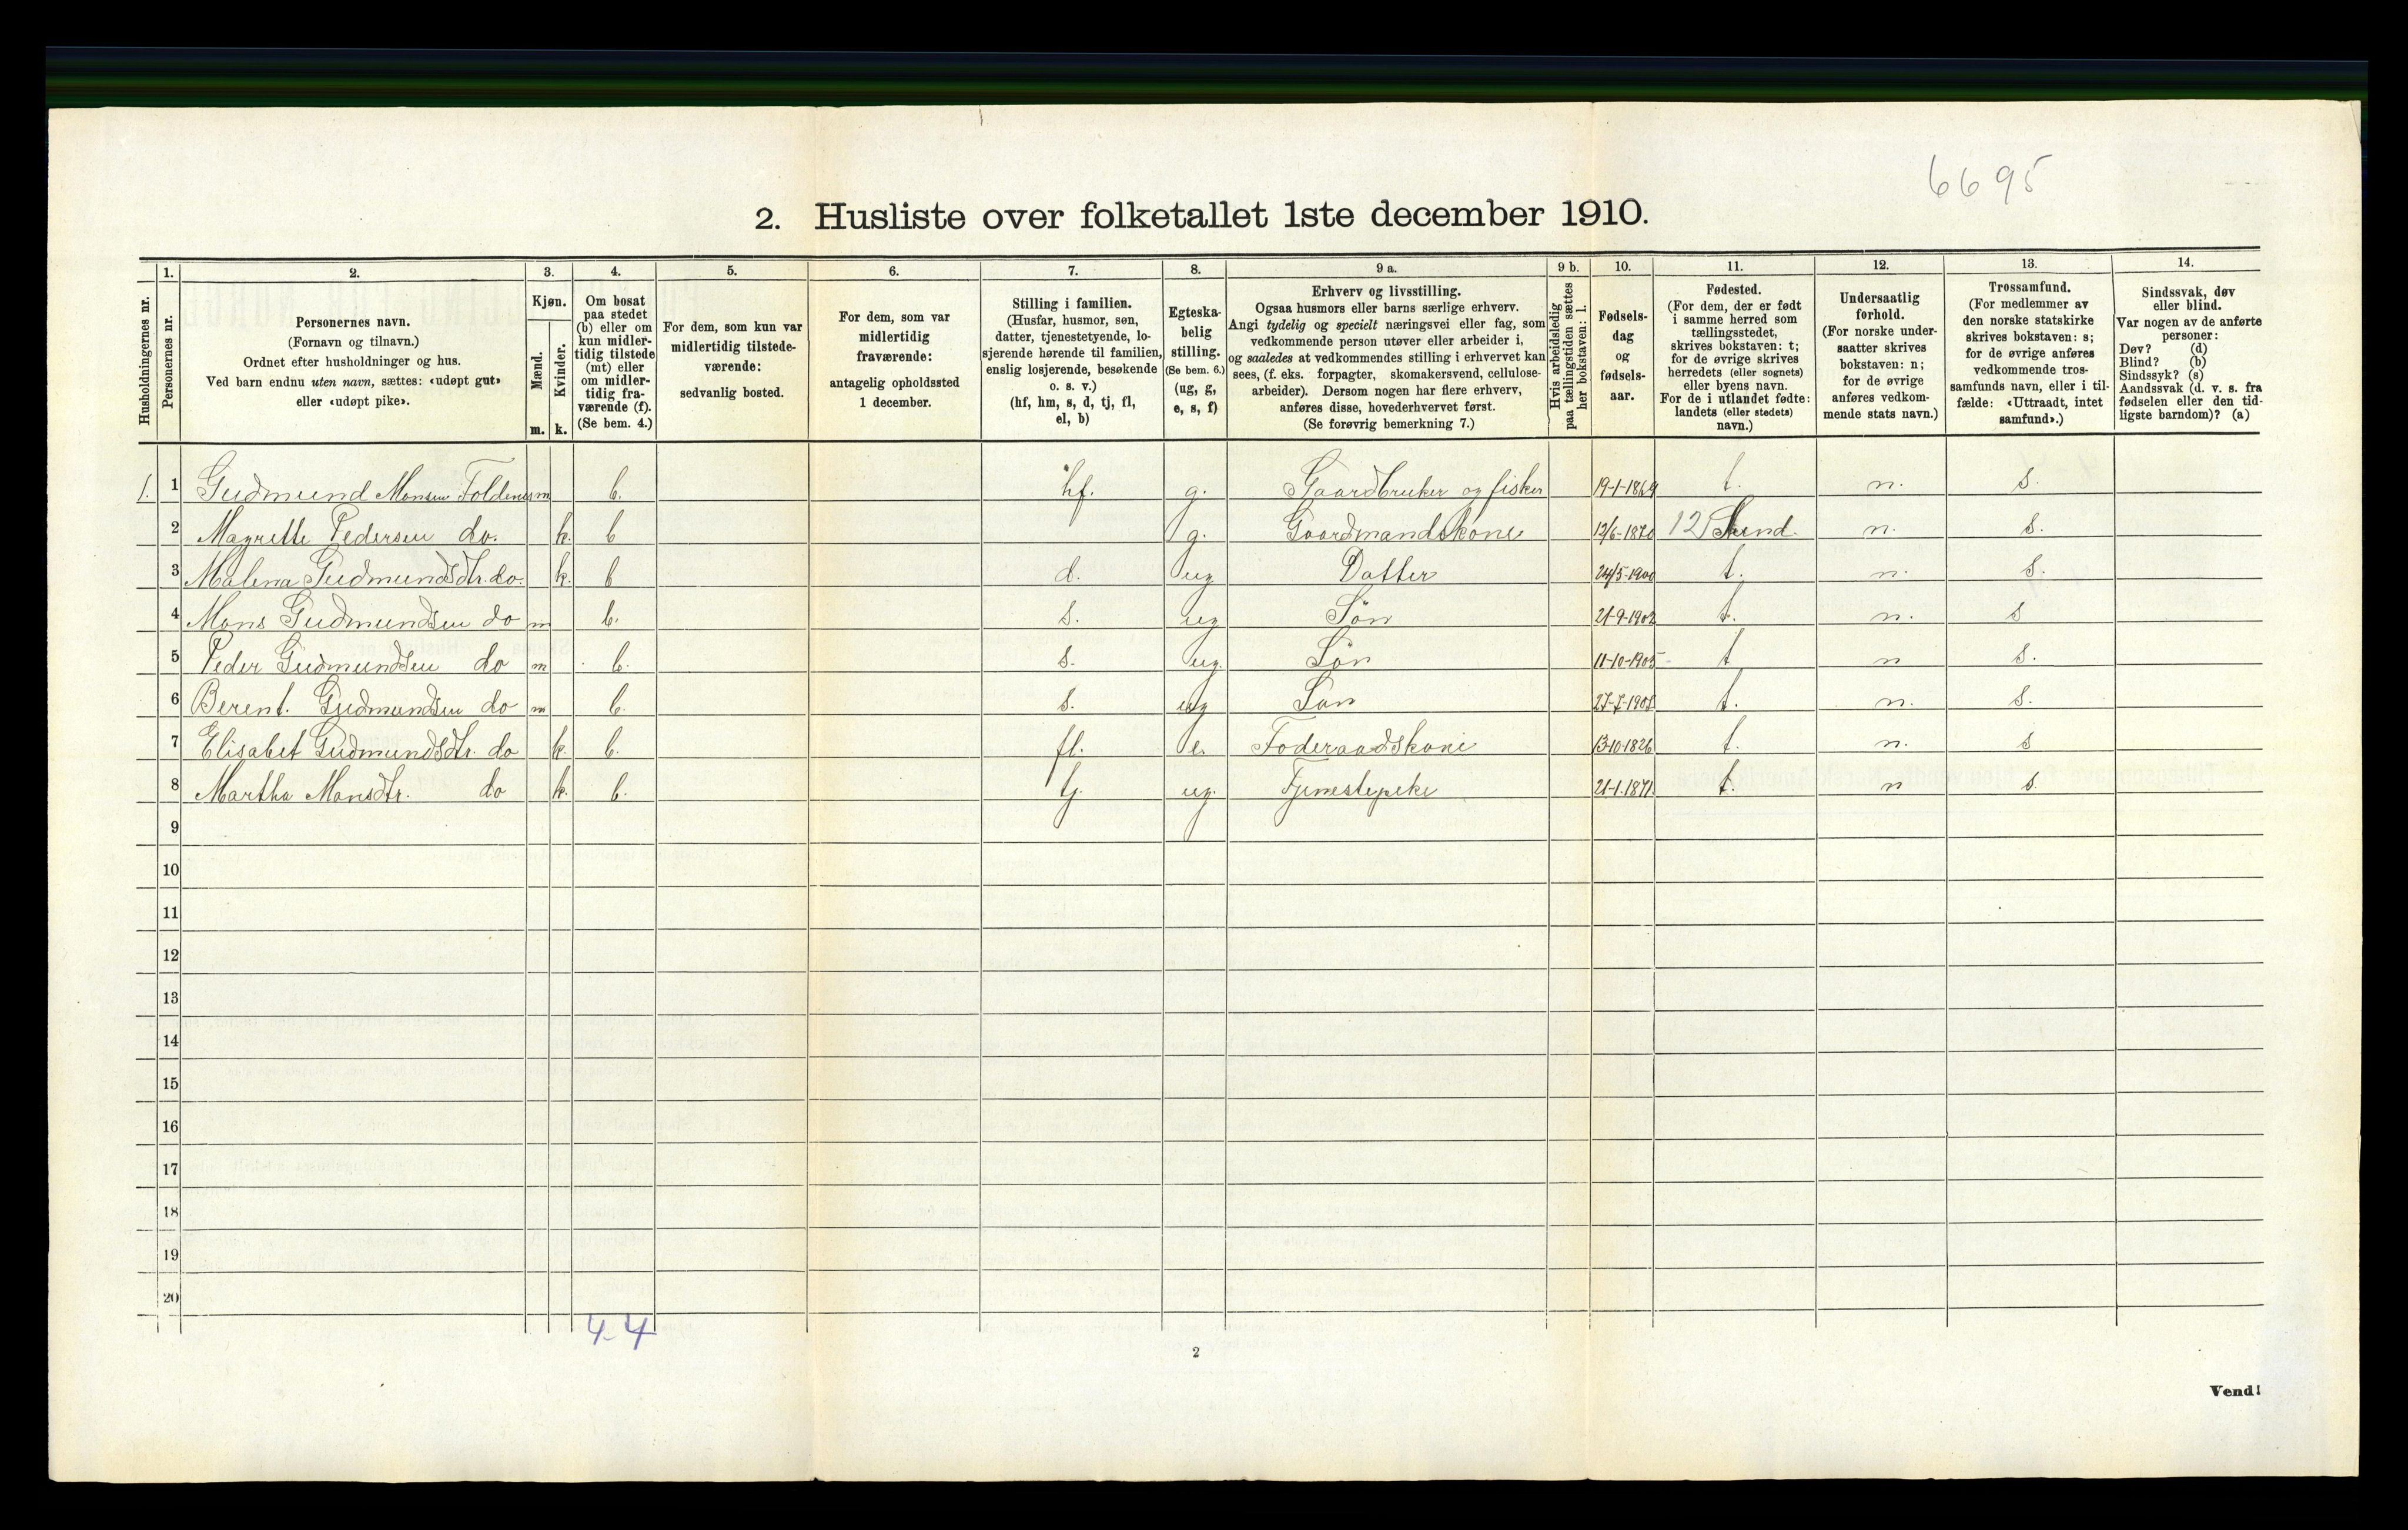 6695
2. Husliste over folketallet 1ste december 1910.
1. 2. 3. 4. 5. 6. 7. 8. 9 a. 9 b. 10. 11. 12. 13. 14.
Husholdningernes nr.
Personernes nr.
Personernes navn.
(Fornavn og tilnavn.)
Ordnet efter husholdninger og hus.
Ved barn endnu uten navn, sættes: «udøpt gut»
eller «udøpt pike».
Kjøn.
Mænd.
Kvinder.
m. k.
Om bosat
paa stedet
(b) eller om
kun midler-
tidig tilstede
(mt) eller
om midler-
tidig fra-
værende (f).
(Se bem. 4.)
For dem, som kun var
midlertidig tilstede-
værende:
sedvanlig bosted.
For dem, som var
midlertidig
fraværende:
antagelig opholdssted
1 december.
Stilling i familien.
(Husfar, husmor, søn,
datter, tjenestetyende, lo-
sjerende hørende til familien,
enslig losjerende, besøkende
o. s. v.)
(hf, hm, s, d, tj, fl,
el, b)
Egteska-
belig
stilling.
(Se bem. 6.)
(ug, g,
e, s, f)
Erhverv og livsstilling.
Ogsaa husmors eller barns særlige erhverv.
Angi tydelig og specielt næringsvei eller fag, som
vedkommende person utøver eller arbeider i,
og saaledes at vedkommendes stilling i erhvervet kan
sees, (f. eks. forpagter, skomakersvend, cellulose-
arbeider). Dersom nogen har flere erhverv,
anføres disse, hovederhvervet først.
(Se forøvrig bemerkning 7.)
Hvis arbeidsledig
paa tællingstiden sættes
her bokstaven: l.
Fødsels-
dag
og
fødsels-
aar.
Fødested.
(For dem, der er født
i samme herred som
tællingsstedet,
skrives bokstaven: t;
for de øvrige skrives
herredets (eller sognets)
eller byens navn.
For de i utlandet fødte:
landets (eller stedets)
navn.)
Undersaatlig
forhold.
(For norske under-
saatter skrives
bokstaven: n;
for de øvrige
anføres vedkom-
mende stats navn.)
Trossamfund.
(For medlemmer av
den norske statskirke
skrives bokstaven: s;
for de øvrige anføres
vedkommende tros-
samfunds navn, eller i til-
fælde: «Uttraadt, intet
samfund».)
Sindssvak, døv
eller blind.
Var nogen av de anførte
personer:
Døv? (d)
Blind? (b)
Sindssyk? (s)
Aandssvak (d. v. s. fra
fødselen eller den tid-
ligste barndom)? (a)
1. 1 Gudmund Monsen Foldenes m b. hf. g. Gaardbruker og fisker 19-1-1869 t. n. s.
2 Magrette Pedersen do. k. b g. Gaardmandskone 12/6-1870 12 Sund n. s.
3 Malena Gudmundsdtr. do. k. b d. ug Datter 24/5-1900 t. n. s.
4 Mons Gudmundsen do m b. s. ug Søn 21-9-1902 t. n. s
5 Peder Gudmundsen do m b. s. ug. Søn 11-10-1905 t n s.
6 Berent. Gudmundsen do m b. s. ug Søn 27-7-1908 t. n. s.
7 Elisabet Gudmundsdtr. do k. b. fl. e. Føderaadskone 13-10-1826 t. n. s
8 Martha Monsdtr. do k. b. tj. ug. Tjenestepike 21-1-1871. t. n s.
9
10
11
12
13
14
15
16
17
18
19
20
4-4
2
Vend!